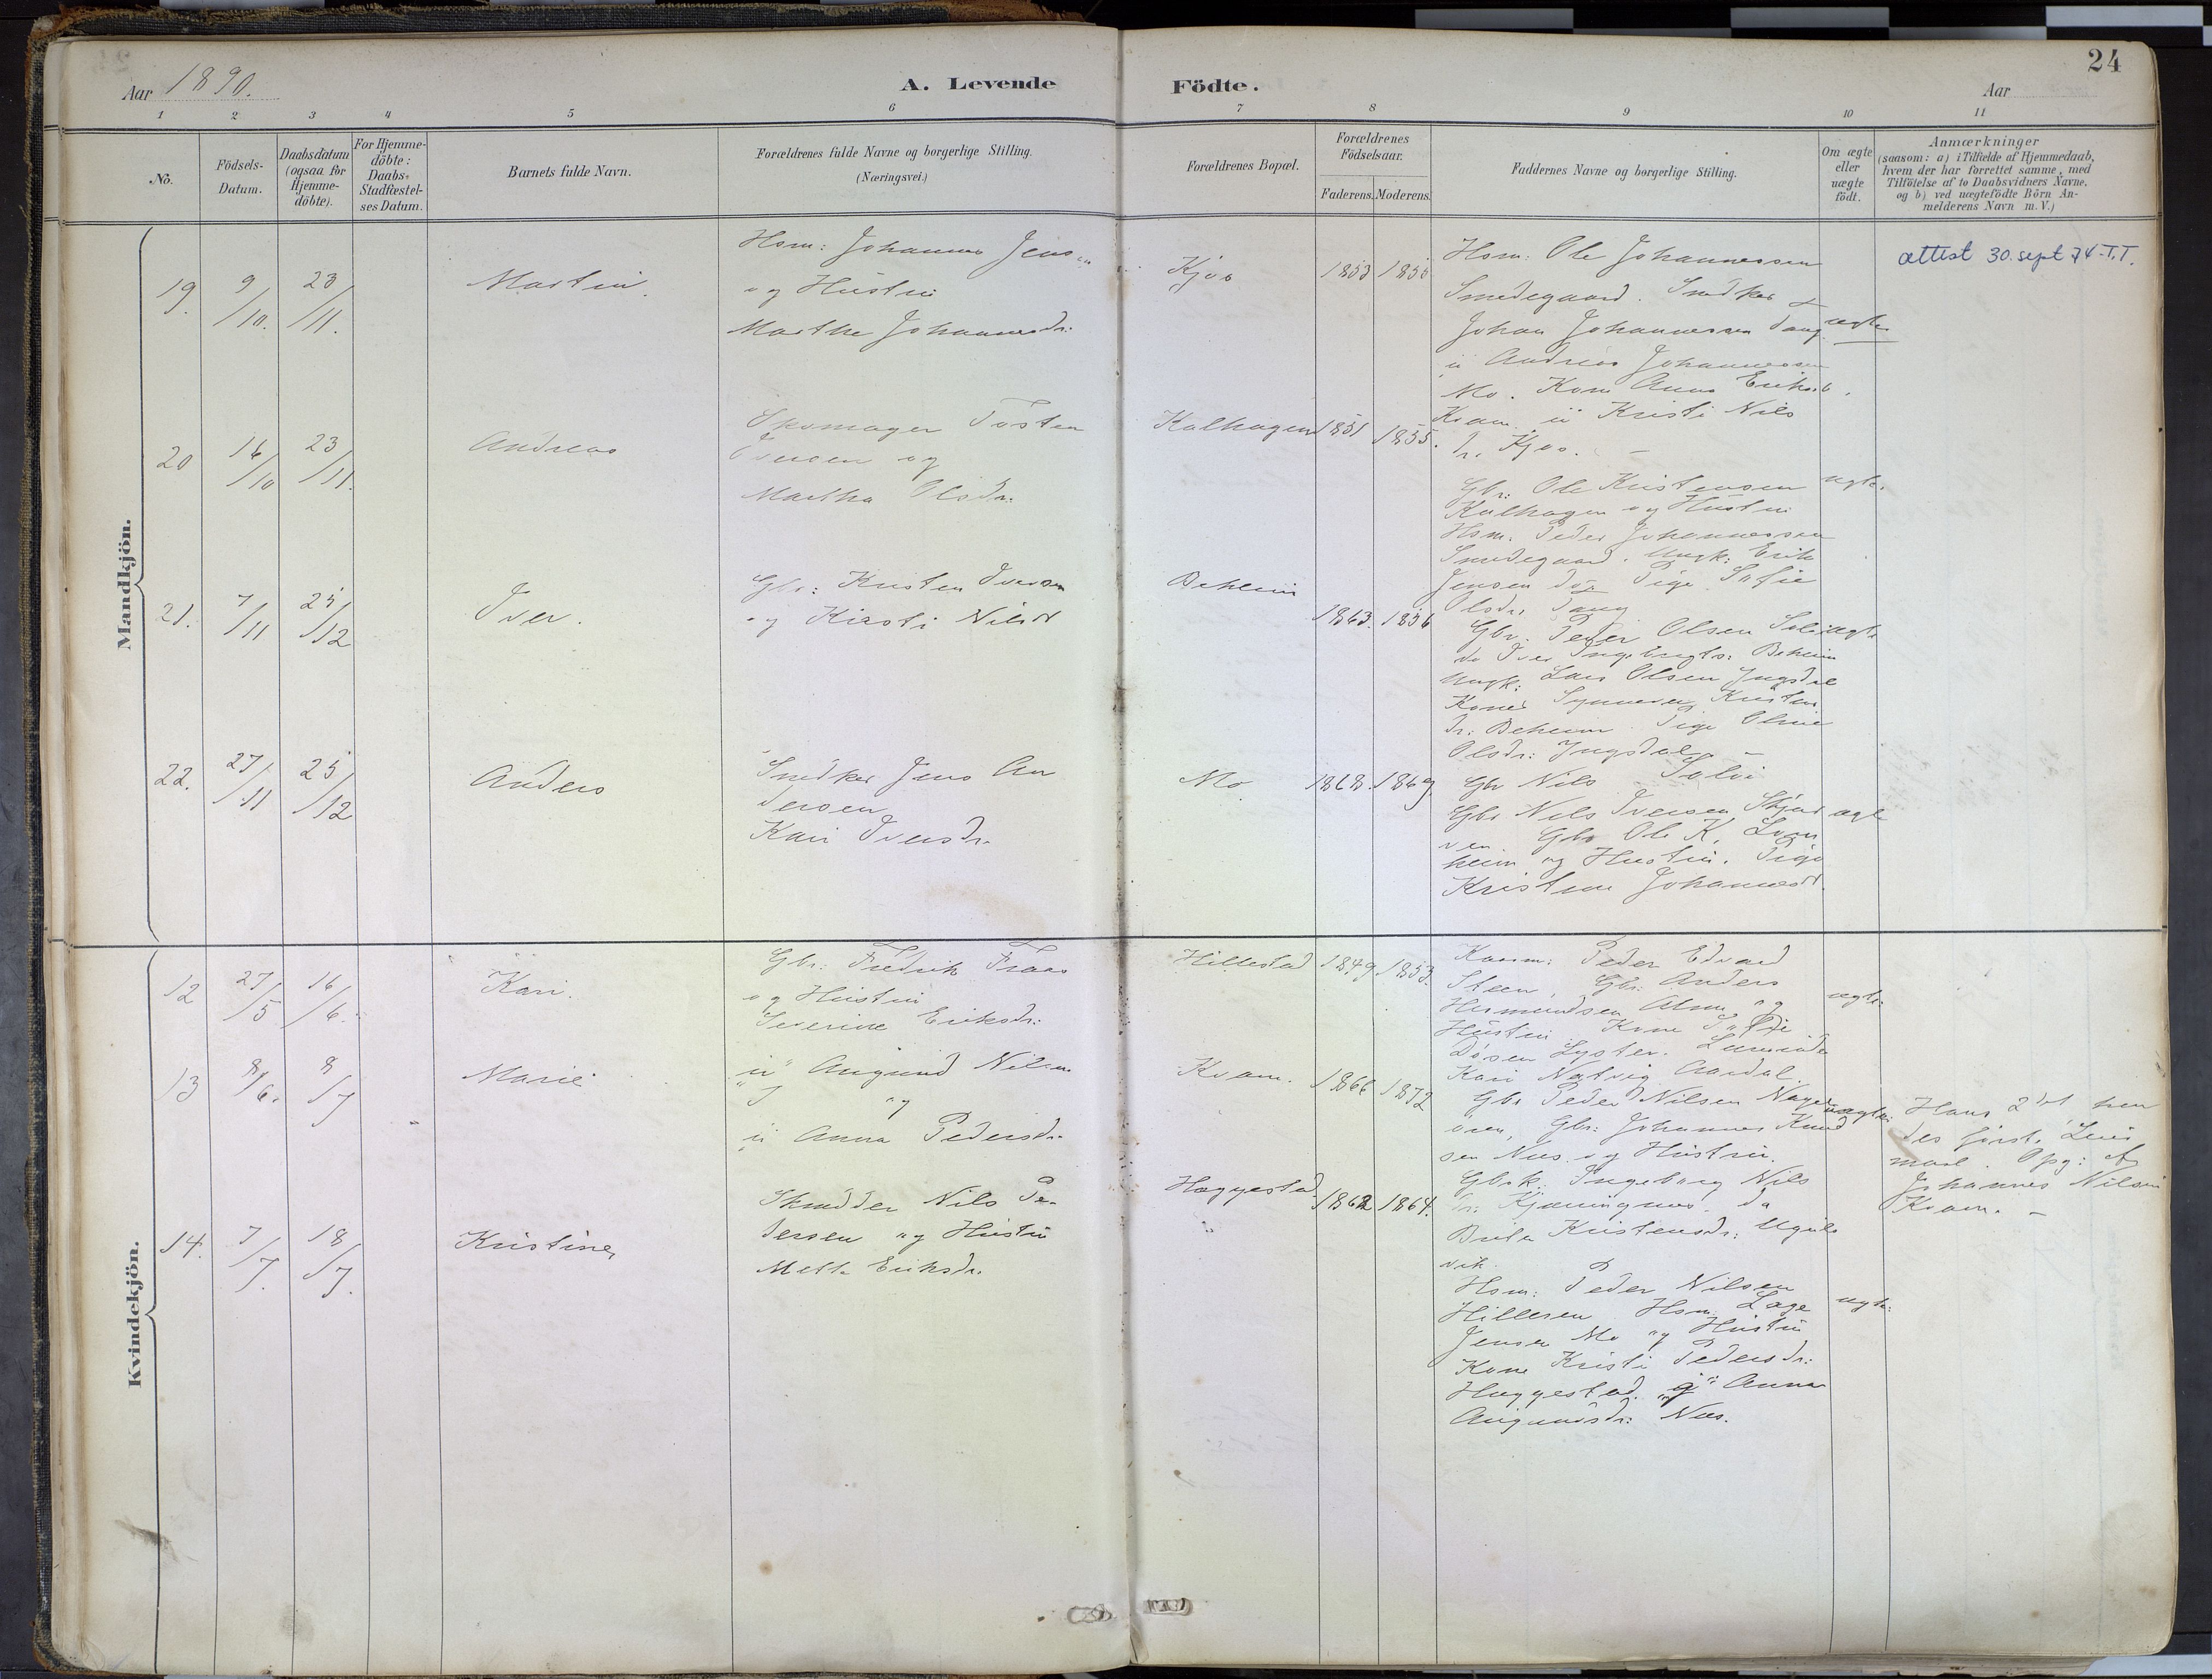 24
Aar 1890.
A. Levende Födte.
Aar
1 2 3 4 5 6 7 8 9 10 11
No.
Födsels-
Datum.
Daabsdatum
(ogsaa for
Hjemme-
döbte).
For Hjemme-
döbte:
Daabs-
Stadfæstel-
ses Datum.
Barnets fulde Navn.
Forældrenes fulde Navne og borgerlige Stilling.
(Næringsvei.)
Forældrenes Bopæl.
Forældrenes
Födselsaar.
Faderens. Moderens.
Faddernes Navne og borgerlige Stilling.
Om ægte
eller
uægte
födt.
Anmærkninger
(saasom: a) i Tilfælde af Hjemmedaab,
hvem der har forrettet samme, med
Tilföielse af to Daabsvidners Navne,
og b) ved uægtefödte Börn An-
melderens Navn m. V.)
Mandkjön.
19. 9/10. 23/11. Martin.
Hsm: Johannes Jens
og Hustru
Marthe Johannesdr:
Kjos 1853 1855
Hsm: Ole Johannessen
Smedegaard. Snedker
Johan Johannessen Taug
Andreas Johannessen
Mo. Kone Anna Eriksd.
Kvam Kristi Nils
dr. Kjos. -
ægte
attest 30. sept 74 T.T.
20 16/10 23/11. Andreas
Skomager Tosten
Iversen og
Martha Olsdr.
Kalhagen 1851 1855.
Gbr: Ole Kristensen
Kalhagen og Hustru
Hsm. Peder Johannessen
Smedegaard. Ungk: Erik
Jensen do Pige Sofie
Olsdr. Taug
ægte.
21. 7/11 25/12 Iver.
Gbr: Kristen Iversen
og Kirsti Nilsd
Beheim 1863. 1856
Gbr. Peder Olsen Solvi
do Iver Ingebrigts: Beheim
Ungk: Lars Olsen Yngsdal
Kone Synneva Kristens
dr: Beheim Pige Oline
Olsdr: Yngsdal -
ægte
22. 27/11 25/12 Anders
Snedker Jens An
dersen
Kari Iversdr.
Mo 1868. 1869.
Gbr Nils Solvi
Gbr Nils Iversen Skjer
ven. Gbr Ole K. Lom
heim og Hustru. Pige
Kristine Johannesd.
ægte
Kvindekjön.
12 27/5 16/6. Kari.
Gbr: Fredrik Fraas
og Hustru
Severine Eriksdr:
Hillestad 1849. 1853.
Kaarm: Peder Edvard
Steen, Gbr: Anders
Hermundsen Alme og
Hustru Kone
Døsen Lyster.
Kari Natvig Aardal.
ægte:
13 8/6. 8/7 Marie
Augund Nilsen
og
Anna Pedersdr.
Kvam. 1866 1872
Gbr Peder Nilsen
ören, Gbr: Johannes Knud
sen Nes og Hustru.
Gbrk: Ingeborg Nils
dr: Kjæmingnes. do
Brita Kristensdr:
vik.
uægte.
Hans 2det hen
des første Leier
maal. Opg: af
Johannes Nilsen
Kvam. -
14. 7/7. 18/7. Kristine
Skrædder Nils Pe-
dersen og Hustru
Metta Eriksdr.
Hæggestad 1862 1864.
Hsm: Peder Nilsen
Hilleren Hsm: Lage
Jensen Mo og Hustru
Kone Kristi Pedersdr:
Hæggestad. Anna
Augundsdr: Nes.
ægte: